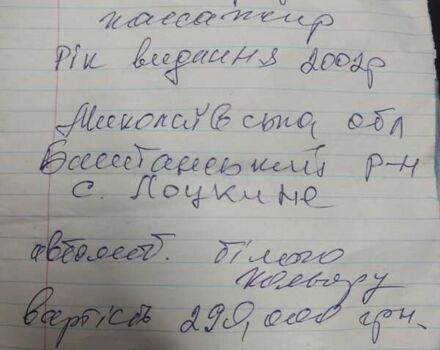 пассажир
Рік видання 2002р
Миколаївська обл
Баштанський р-н
с. Лоцкине
автомоб. білого
кольору
вартість 290,000 грн.